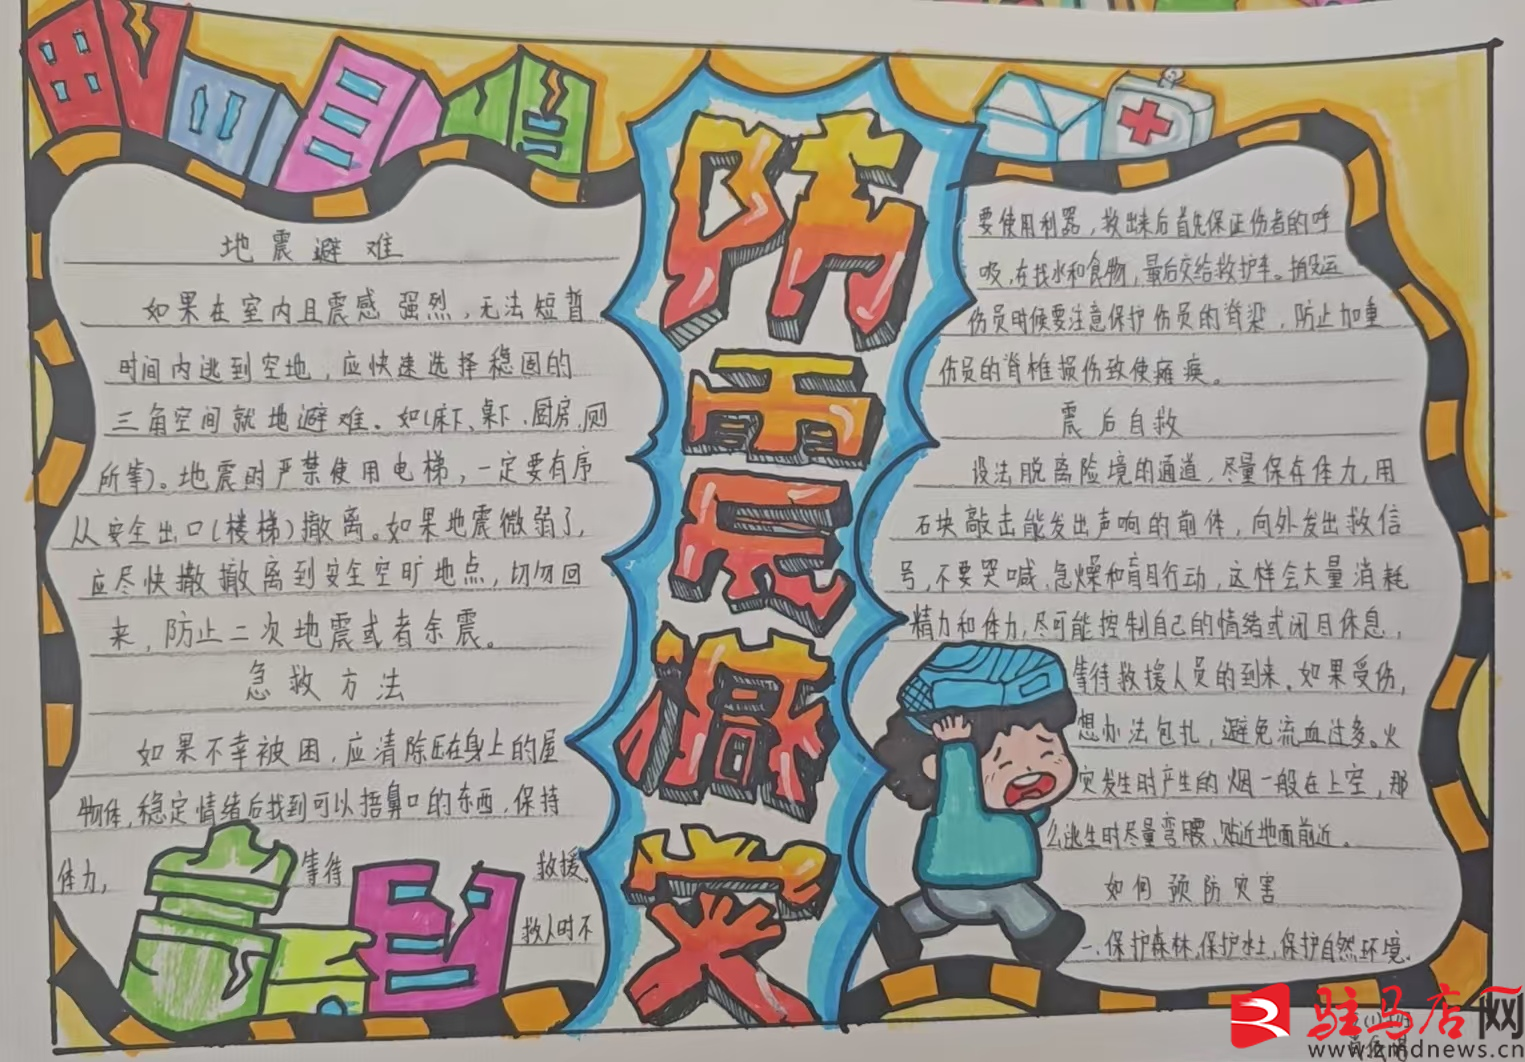 防震减灾
地震避难
如果在室内且震感强烈,无法短暂
时间内逃到空地,应快速选择稳固的
三角空间就地避难。如(床下、桌下、厨房、厕
所等)。地震时严禁使用电梯,一定要有序
从安全出口(楼梯)撤离。如果地震微弱了,
应尽快撒撤离到安全空旷地点,切勿回
来,防止二次地震或者余震。
急救方法
如果不幸被困,应清除压在身上的屋
物体,稳定情绪后找到可以捂鼻口的东西,保持
体力,等待救援。
救人时不
要使用利器,救出来后首先保证伤者的呼
吸,在找水和食物,最后交给救护车。搬运
伤员时候要注意保护伤员的脊梁,防止加重
伤员的脊椎损伤致使瘫痪。
震后自救
设法脱离险境的通道,尽量保存体力,用
石块敲击能发出声响的前体,向外发出救信
号,不要哭喊、急燥和盲目行动,这样会大量消耗
精力和体力,尽可能控制自己的情绪或闭目休息,
等待救援人员的到来。如果受伤,
想办法包扎,避免流血过多。火
灾发生时产生的烟一般在上空,那
么逃生时尽量弯腰、贴近地面前近。
如何预防灾害
一.保护森林,保护水土,保护自然环境.
驻马店网
www.zmdnews.cn